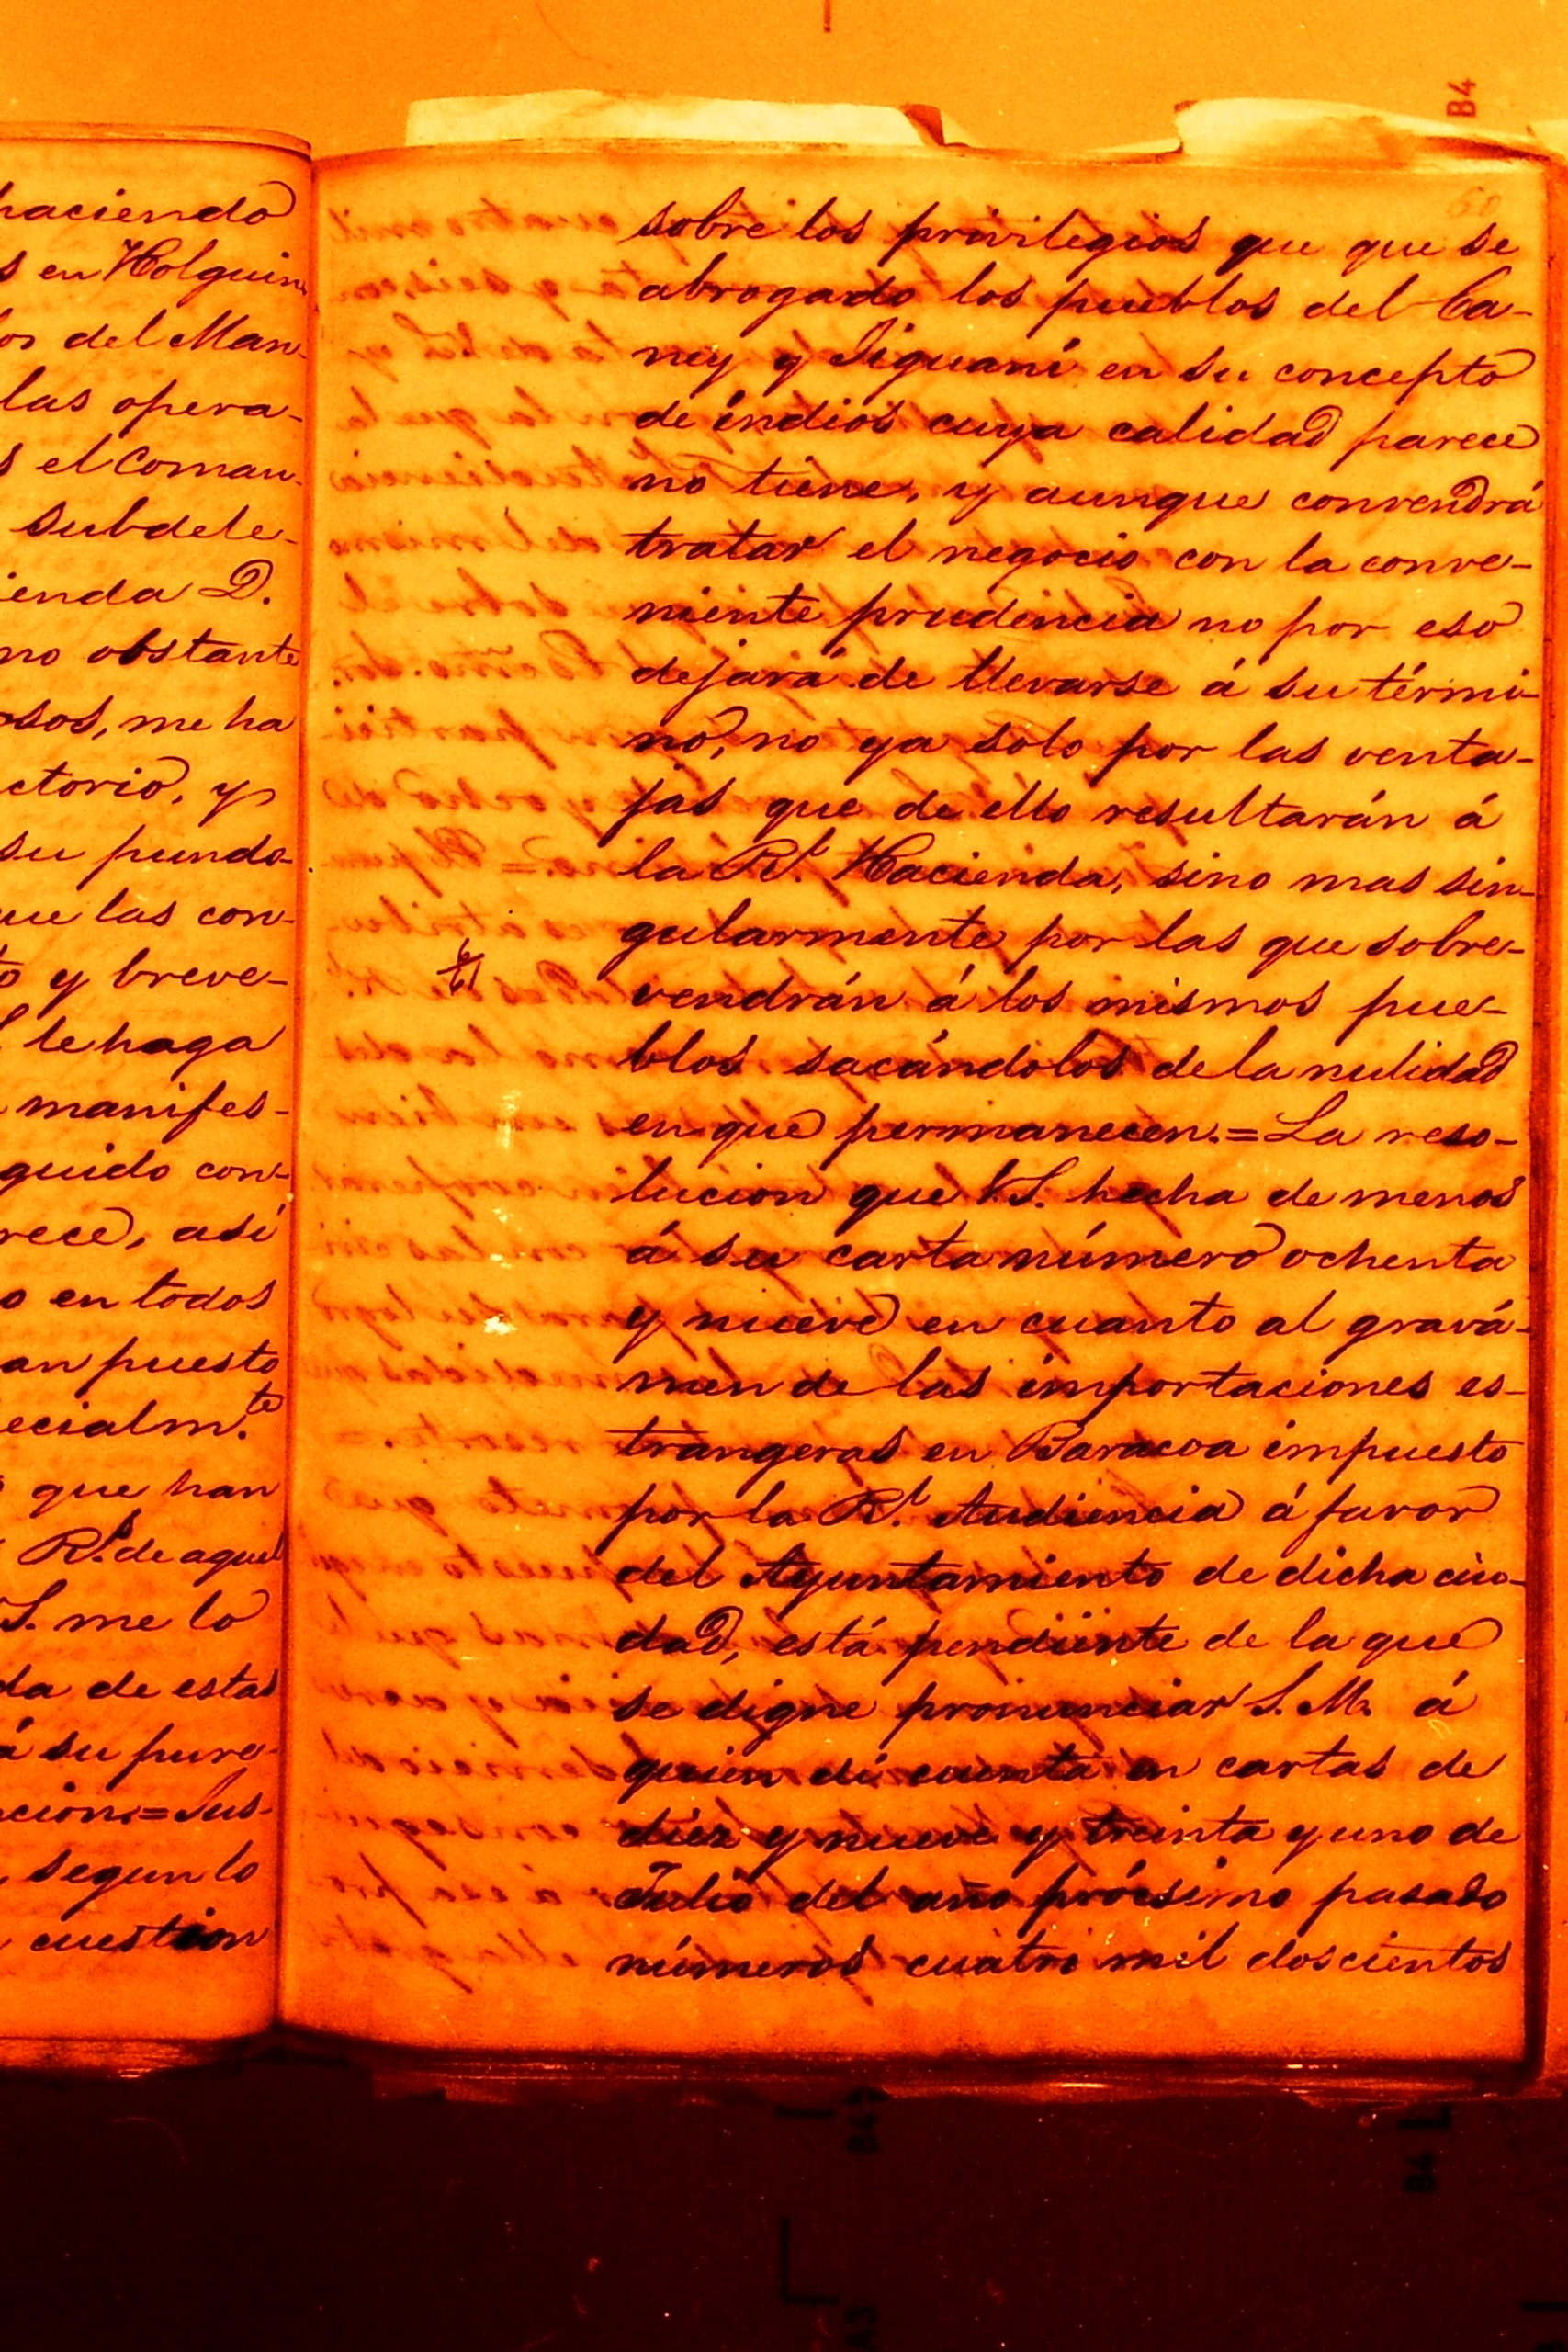 haciendo
s en Holguin
os del Man-
las opera-
s el Coman-
subdele-
ienda D.
no obstante
osos, me ha
ctorio, y
su pundo-
ue las con-
to y breve-
le haga
manifes-
guido con-
rece, así
o en todos
an puesto
ecialm.te
que han
Rl. de aquel
S. me lo
da de estas
á su pure-
cion.=Jus-
segun lo
cuestion
60
sobre los privilegios que que se
abrogado los pueblos del Ca-
ney y Jiguaní en su concepto
de índios cuya calidad parece
no tiene, y aunque convendrá
tratar el negocio con la conve-
niente prudencia no por eso
dejará de llevarse á su térmi-
no, no ya solo por las venta-
jas que de ello resultarán á
la Rl. Hacienda, sino mas sin-
gularmente por las que sobre-
vendrán á los mismos pue-
blos sacándolos de la nulidad
en que permanecen.=La reso-
lucion que VS. hecha de menos
á su carta número ochenta
y nueve en cuanto al gravá-
men de las importaciones es-
trangeras en Baracoa impuesto
por la Rl. Audiencia á favor
del Ayuntamiento de dicha ciu-
dad, está pendiente de la que
se digne pronunciar S. M. á
quien dí cuenta en cartas de
diez y nueve y treinta y uno de
Julio del año prócsimo pasado
números cuatro mil doscientos
B4
B4
B4
A3